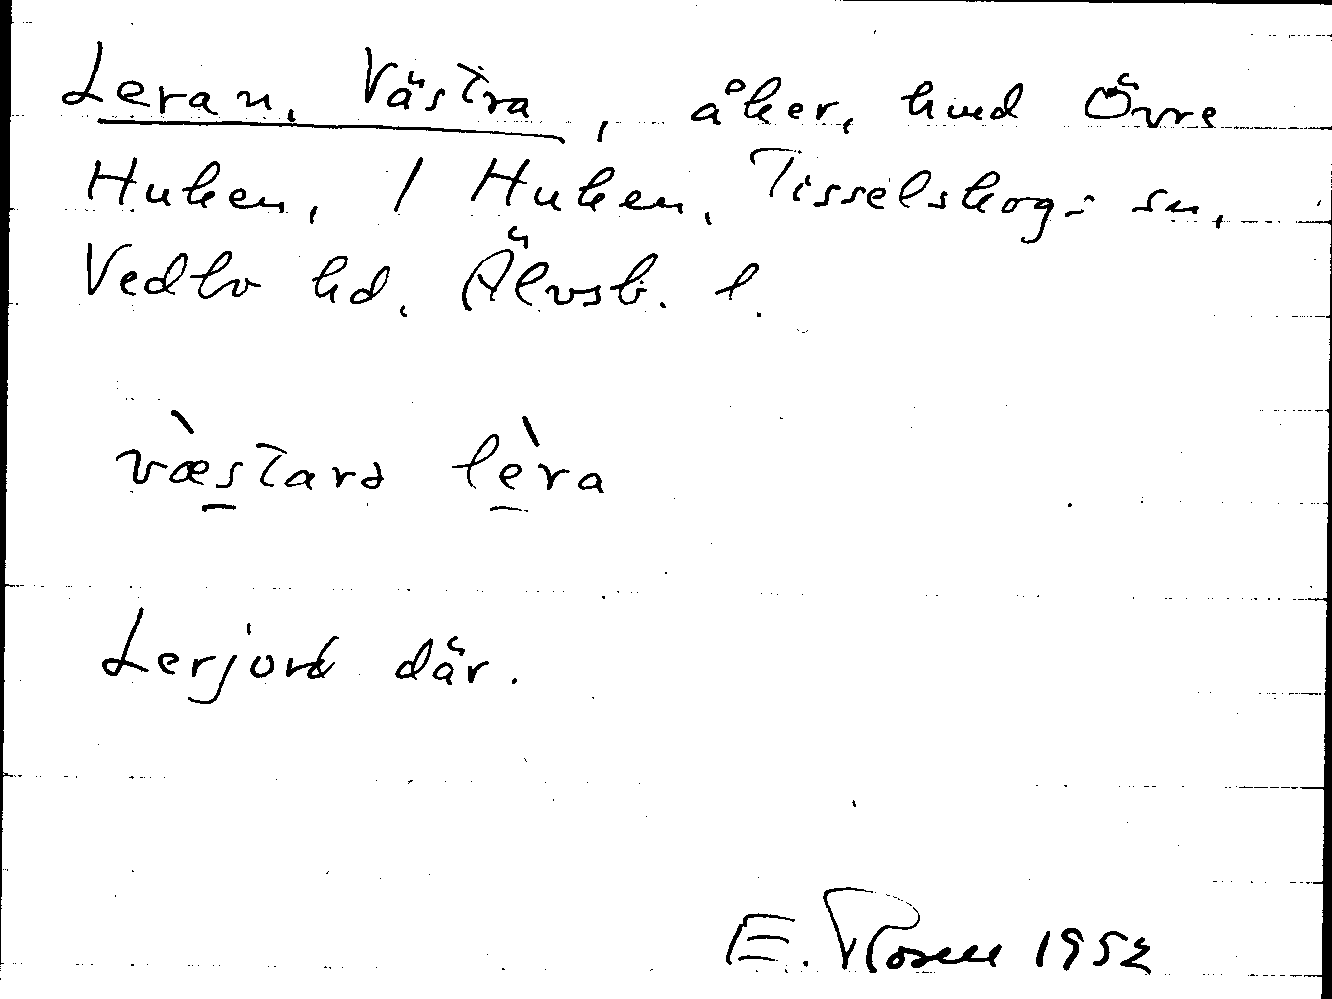 Leran, Västra, åker, hmd Övre
Huken, / Huken, Tisselskogs sn,
Vedbo hd, Älvsb. l.
væ̀starə lèra
Lerjord där.
E. Rosell 1952